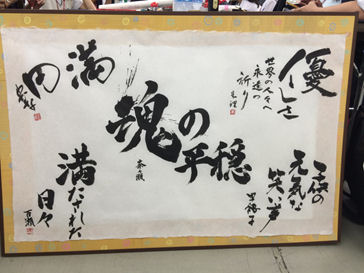 優しさ
世界の人々へ
永遠の
祈り
子供の
元気な
笑い声
魂の
平穏
満
円
満たされた
日々
百瀬